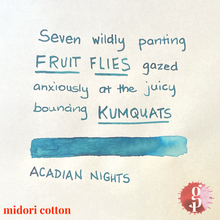 Seven wildly panting
FRUIT FLIES gazed
anxiously at the juicy
bouncing KUMQUATS
ACADIAN NIGHTS
midori cotton